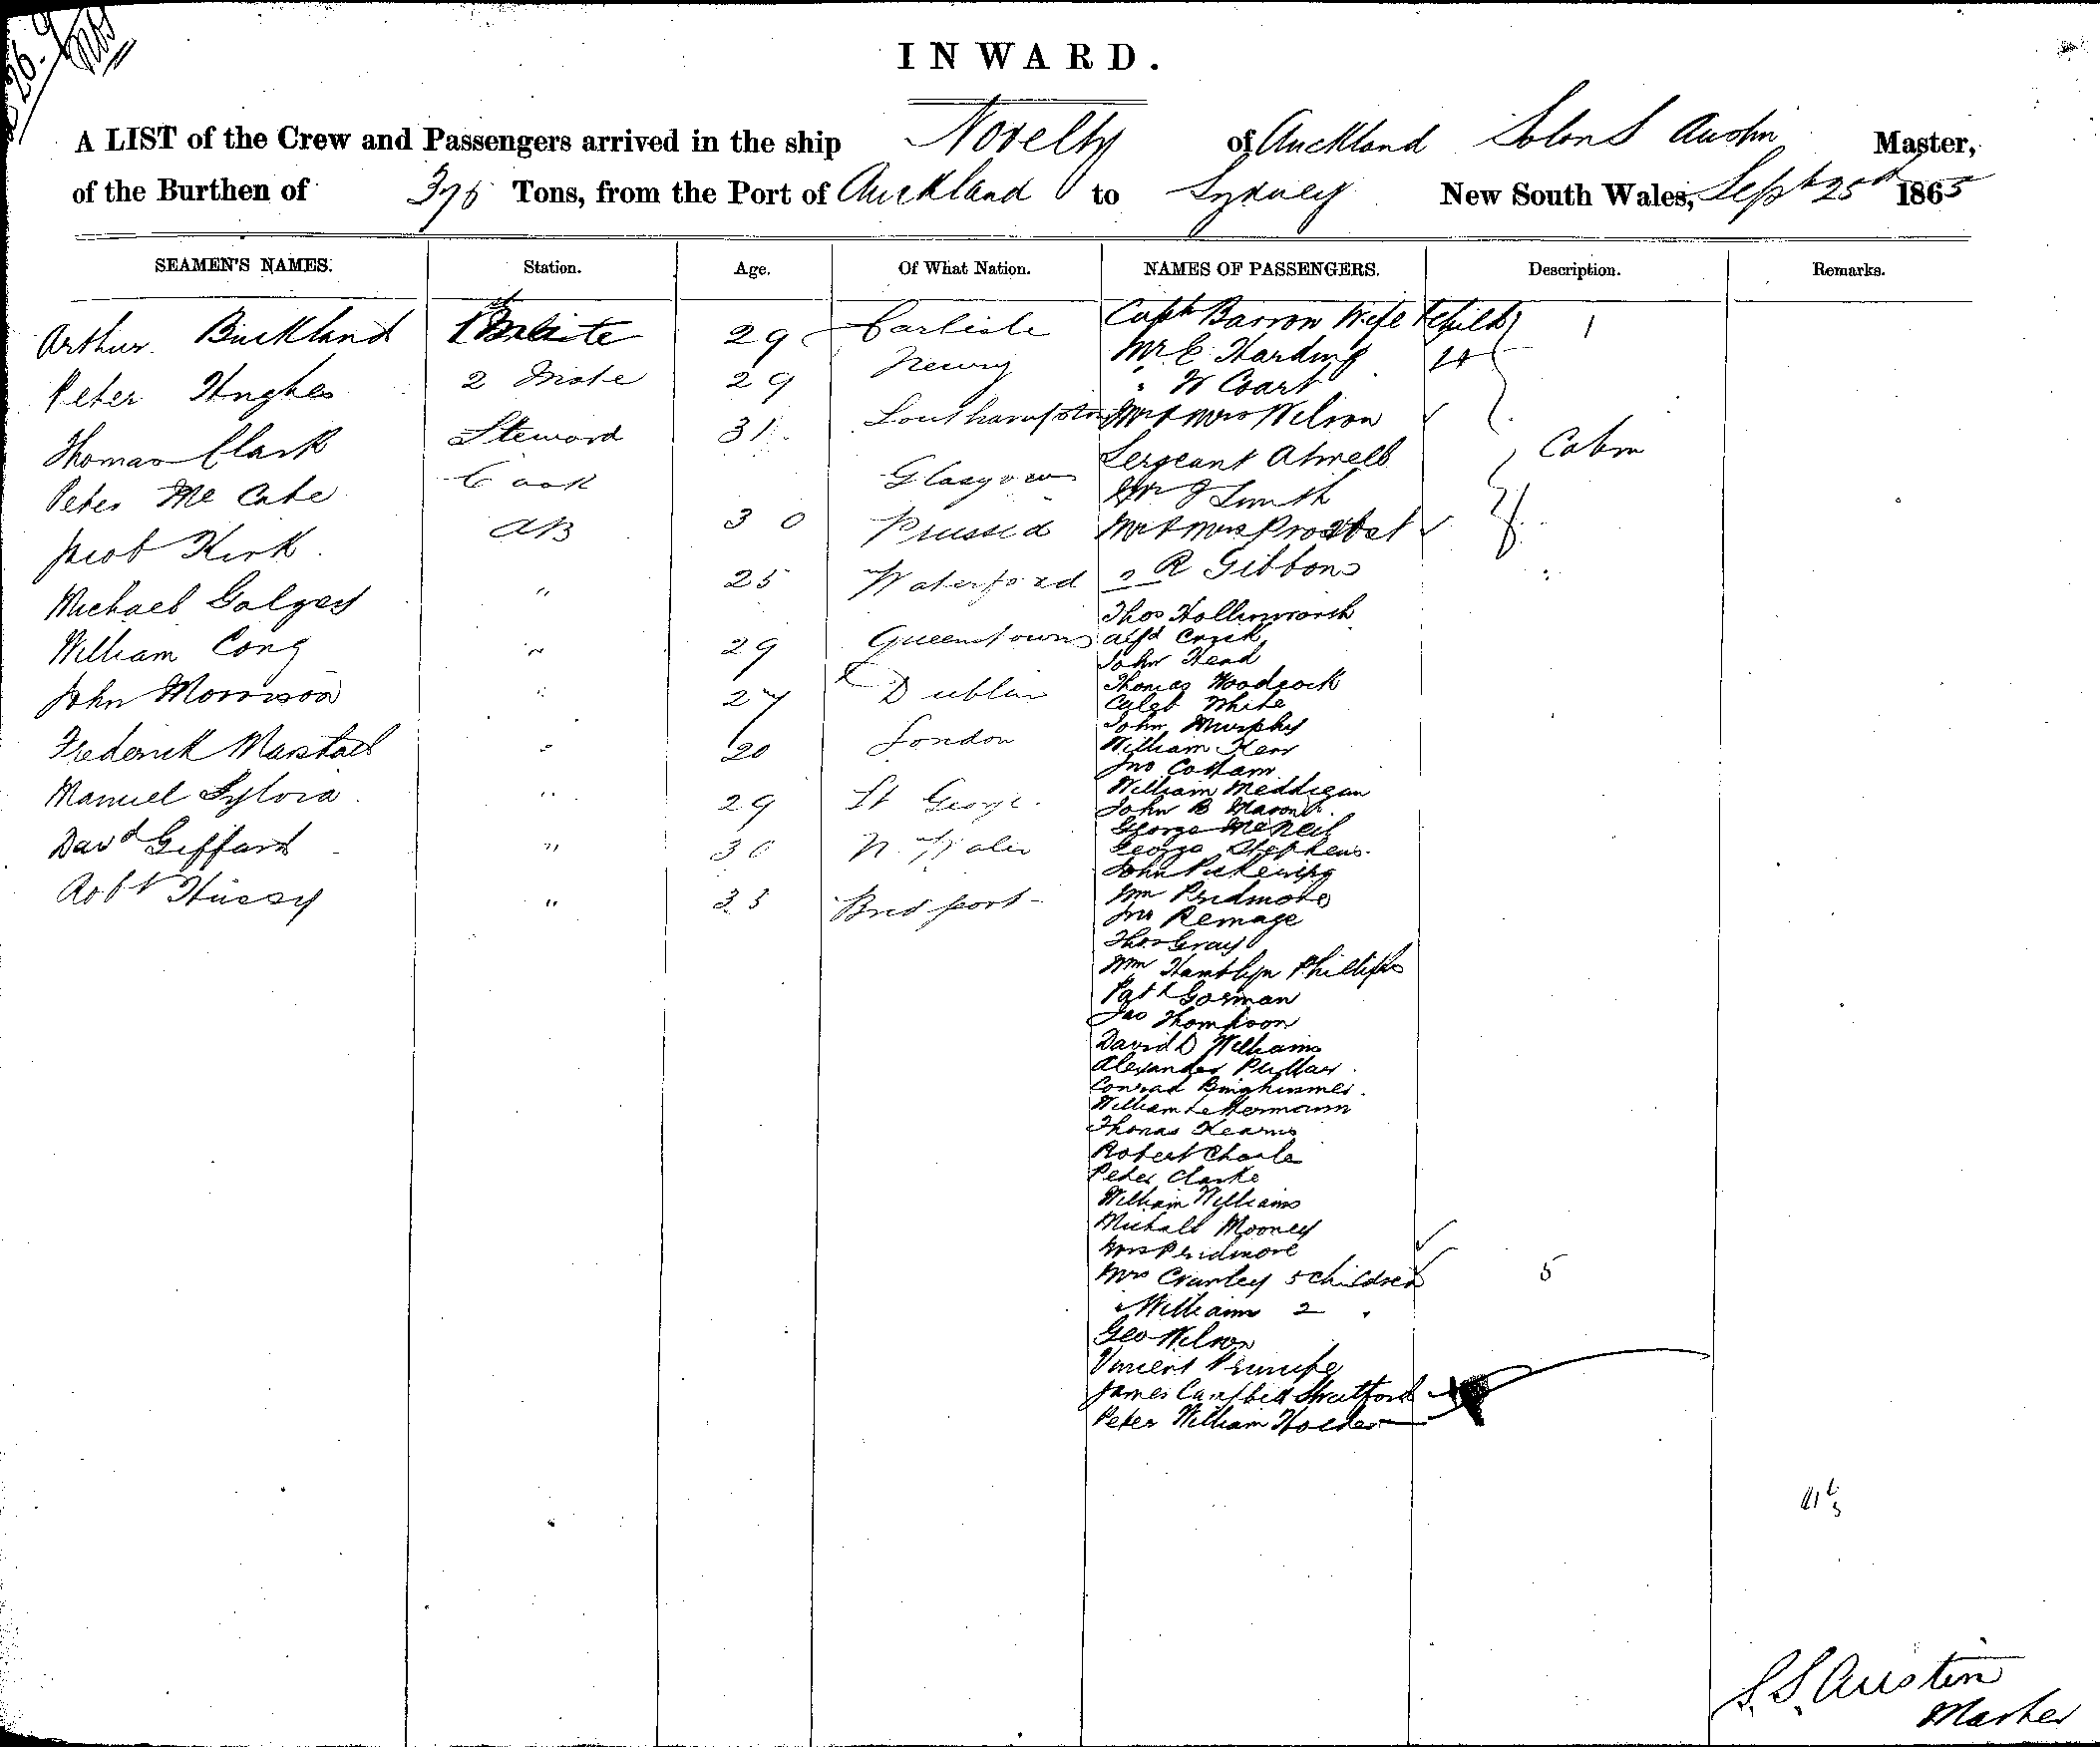 INWARD.
A LIST of the Crew and Passengers arrived in the ship Novelty of Auckland Solon S Austin Master,
of the Burthen of 376 Tons, from the Port of Auckland to Sydney New South Wales, Sept 25th 1865
SEAMEN'S NAMES. Station. Age. Of What Nation. NAMES OF PASSENGERS. Description. Remarks.
Arthur Buckland 1st Mate 29 Carlisle
Peter Hughes 2 Mate 29 Newry
Thomas Clark Steward 31 Southampton
Peter Mc Cabe Cook Glasgow
Jacob Kirk AB 30 Prussia
Michael " 25 Waterford
William Cong " 29 Queenstown
John Morrison " 27 Dublin
Frederick Marshall " 20 London
Manuel Sylvia " 29 St George
Davd Giffard " 30 N. Wales
Robt Hussy " 35 Bridport
Captn Barron Wife & Child 1
Mr E Harding
" W Coart
Mr & Mrs Wilson
Sergeant Atwell Cabin
Mr J Smith
Mr & Mrs
R Gibbons
Thos Hollinworth
Alfd
John Head
Thomas Woodcock
Caleb White
John Murphy
William Kerr
Jno Cottam
William Meddigan
John B Mason
George McNeil
George Stephens
John Pickering
Wm Pridmore
Jno Remage
Thos Gray
Wm Hamblyn Phillips
Patk Gorman
Jas Thompson
David D Williams
Alexander Pullar
Conrad
William
Thomas Kearns
Robert
Peter Clarke
William Williams
Michall Mooney
Mrs Pridmore
Mrs Crawley 5 Children 5
" Williams 2 "
Geo Wilson
Vincent
James Campbell Stratford
Peter William Holder
S. S. Austin
Master